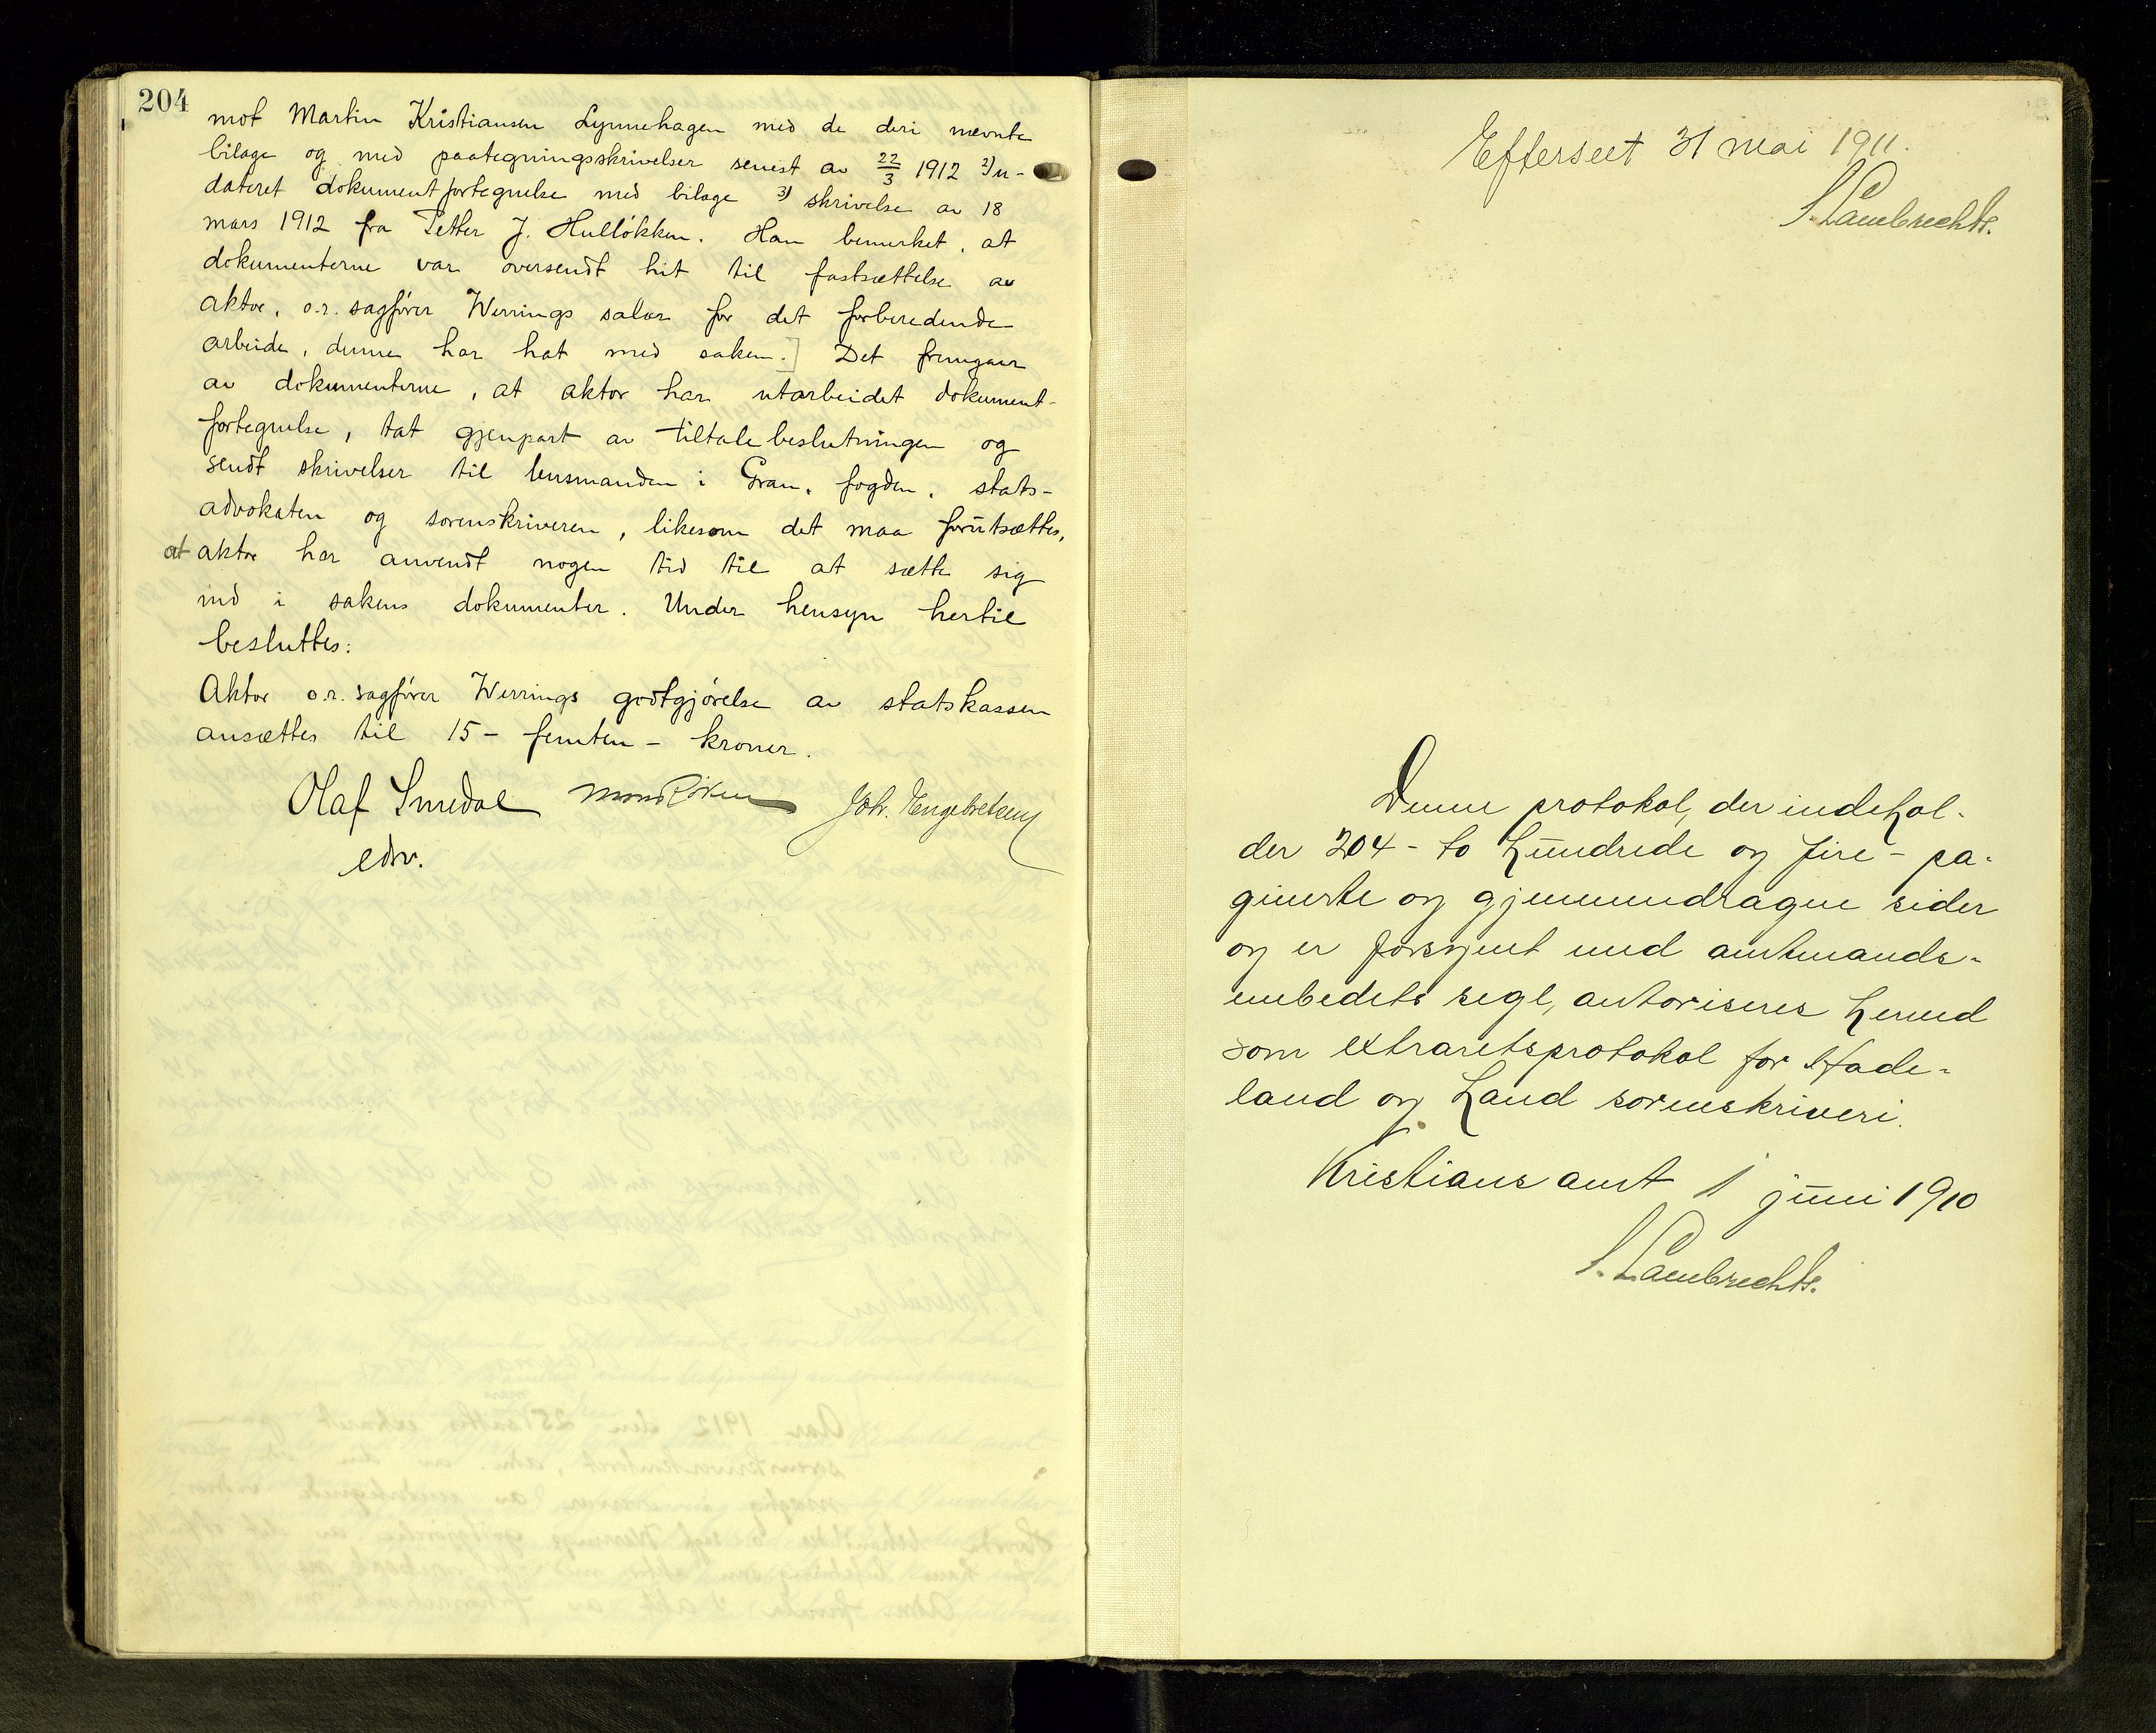 204
mot Martin Kristiansen Lynnehagen med de deri nævnte
bilage og med paategningsskrivelser senest av 22/3 1912 2) u-
dateret dokumentfortegnelse med bilage 3) skrivelse av 18
mars 1912 fra Petter J. Hulløkken. Han bemerket, at
dokumenterne var oversendt hit til fastsættelse av
aktor, o.r. sagfører Werrings salær for det forberedende
arbeide, denne har hat med saken.] Det fremgaar
av dokumenterne, at aktor har utarbeidet dokument-
fortegnelse, tat gjenpart av tiltalebeslutningen og
sendt skrivelser til lensmanden i Gran, fogden, stats-
advokaten og sorenskriveren, likesom det maa forutsættes,
at aktor har anvendt nogen tid til at sætte sig
ind i sakens dokumenter. Under hensyn hertil
besluttes:
Aktor o.r. sagfører Werrings godtgjørelse av statskassen
ansættes til 15 - femten - kroner.
Olaf Smedal Joh. Engebretsen
edsv.
Efterseet 31 mai 1911.
S. Lambrechts.
Denne protokol, der indehol-
der 204 - to hundrede og fire - pa-
ginerte og gjennemdragne sider
og er forsynet med amtmands-
embedets segl, autoriseres herved
som extraretsprotokol for Hade-
land og Land sorenskriveri.
Kristians amt 1 juni 1910
S. Lambrechts.